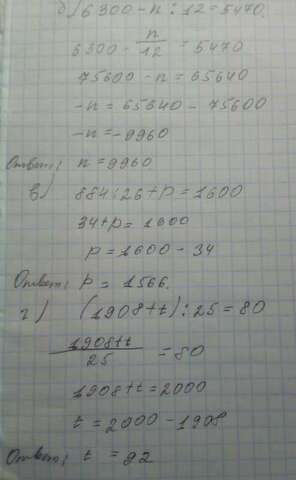 б) 6300 - n : 12 = 5470.
6300 - n/12 = 5470
75600 - n = 65640
-n = 65640 - 75600
-n = -9960
Ответ: n = 9960
в) 884:26 + p = 1600
34 + p = 1600
p = 1600 - 34
Ответ: p = 1566.
г) (1908 + t) : 25 = 80
1908+t/25 = 80
1908 + t = 2000
t = 2000 - 1908
Ответ: t = 92